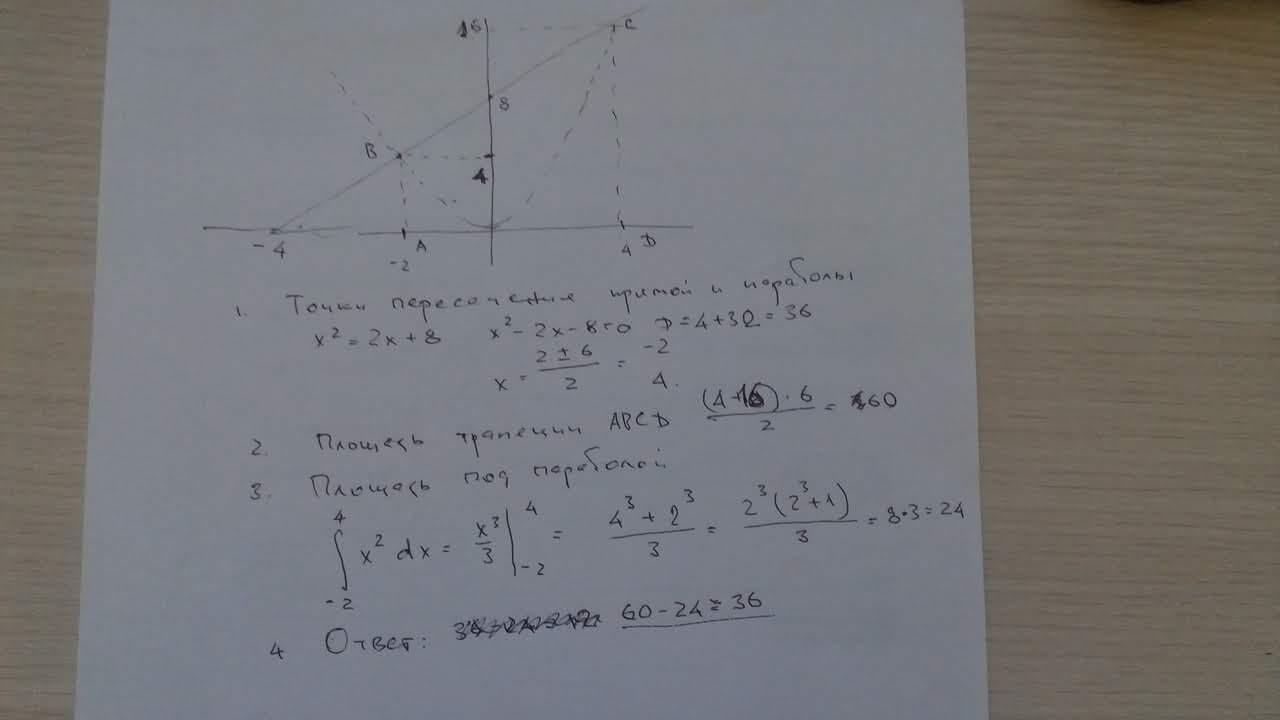 16
C
8
B
4
-4
-2
A
4
D
1. Точки пересечения прямой и параболы
x² = 2x + 8 x² - 2x - 8 = 0 D = 4 + 32 = 36
x = (2 ± 6)/2 = -2
4.
2. Площадь трапеции ABCD (4+16)·6/2 = 60
3. Площадь под параболой
∫₋₂⁴ x² dx = x³/3 |₋₂⁴ = (4³ + 2³)/3 = 2³(2³+1)/3 = 8·3 = 24
4 Ответ: 60 - 24 = 36